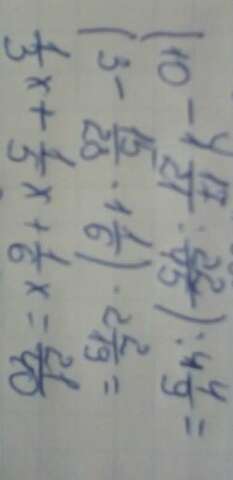 (10 - 4 17/27 : 22/45) : 4 4/9 =
(3 - 15/28 · 1 1/6) · 2 2/19 =
1/3 x + 1/5 x + 1/6 x = 21/40